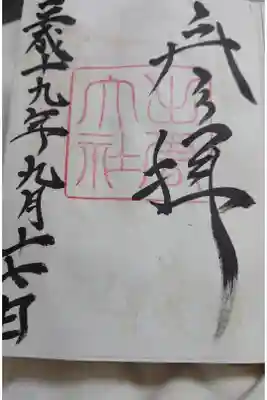 奉拝
出雲大社
平成十九年九月十七日